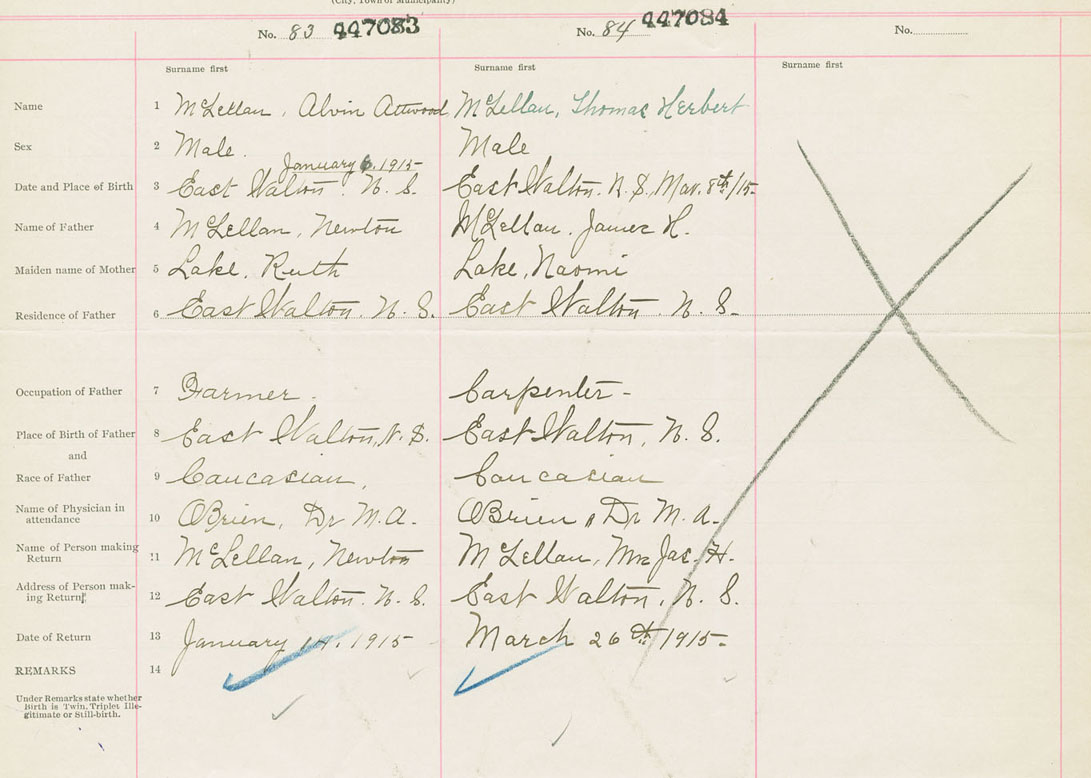 (City, Town or Municipality)
No. 83 447083 No. 84 447084 No.
Surname first Surname first Surname first
Name 1 McLellan, Alvin Attwood McLellan, Thomas Herbert
Sex 2 Male. Male
January 6. 1915
Date and Place of Birth 3 East Walton. N. S. East Walton. N. S. Mar. 8th/15-
Name of Father 4 McLellan, Newton McLellan, James H.
Maiden name of Mother 5 Lake, Ruth Lake, Naomi
Residence of Father 6 East Walton. N. S. East Walton. N. S.
Occupation of Father 7 Farmer. Carpenter-
Place of Birth of Father 8 East Walton, N. S. East Walton, N. S.
and
Race of Father 9 Caucasian, Caucasian
Name of Physician in
attendance 10 OBrien, Dr M. A. OBrien, Dr M. A.
Name of Person making
Return 11 McLellan, Newton McLellan, Mrs Jas. H.
Address of Person mak-
ing Return 12 East Walton. N. S. East Walton, N. S.
Date of Return 13 January 14. 1915 March 26th 1915-
REMARKS 14
Under Remarks state whether
Birth is Twin, Triplet Ille-
gitimate or Still-birth.